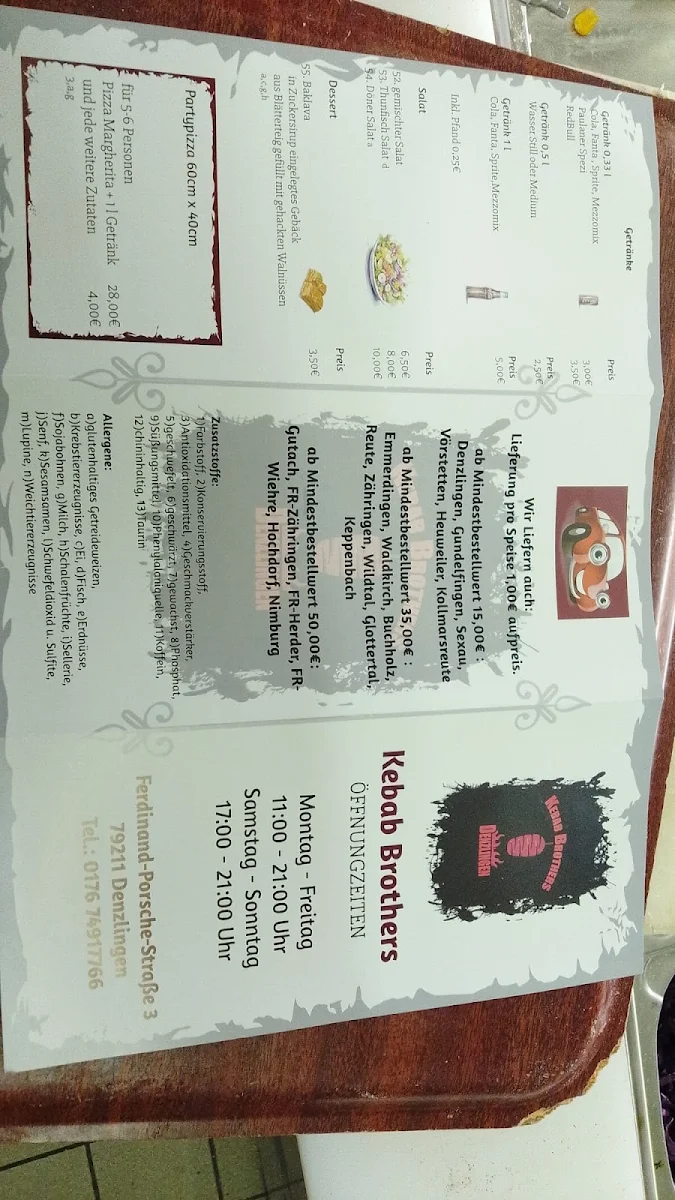 Getränke
Getränk 0,33 l Preis
Cola, Fanta, Sprite, Mezzomix 3,00€
Paulaner Spezi 3,50€
RedBull
Getränk 0,5 l Preis
Wasser Still oder Medium 2,50€
Getränk 1 l Preis
Cola, Fanta, Sprite, Mezzomix 5,00€
Inkl. Pfand 0,25€
Salat Preis
52. gemischter Salat 6,50€
53. Thunfisch Salat d 8,00€
54. Döner Salat a 10,00€
Dessert Preis
55. Baklava 3,50€
in Zuckersirup eingelegtes Gebäck
aus Blätterteig gefüllt mit gehackten Walnüssen
a,c,g,h
Partypizza 60cm x 40cm
für 5-6 Personen
Pizza Margherita + 1 l Getränk 28,00€
und jede weitere Zutaten 4,00€
3,a,g
Wir Liefern auch:
Lieferung pro Speise 1,00€ aufpreis.
ab Mindestbestellwert 15,00€ :
Denzlingen, Gundelfingen, Sexau,
Vörstetten, Heuweiler, Kollmarsreute
ab Mindestbestellwert 35,00€ :
Emmerdingen, Waldkirch, Buchholz,
Reute, Zähringen, Wildtal, Glottertal,
Keppenbach
ab Mindestbestellwert 50,00€:
Gutach, FR-Zähringen, FR-Herder, FR-
Wiehre, Hochdorf, Nimburg
Zusatzstoffe:
1)Farbstoff, 2)Konservierungsstoff,
3)Antioxidationsmittel, 4)Geschmackverstärker,
5)geschwefelt, 6)geschwärzt, 7)gewachst, 8)Phosphat,
9)Süßungsmittel, 10)phenylalaninquelle, 11)Koffein,
12)chininhaltig, 13)Taurin
Allergene:
a)glutenhaltiges Getreideweizen,
b)Krebstiererzeugnisse, c)Ei, d)Fisch, e)Erdnüsse,
f)Sojabohnen, g)Milch, h)Schalenfrüchte, i)Sellerie,
j)Senf, k)Sesamsamen, l)Schuefeldioxid u. Sulfite,
m)Lupine, n)Weichtiererzeugnisse
KEBAB BROTHERS
DENZLINGEN
Kebab Brothers
ÖFFNUNGZEITEN
Montag - Freitag
11:00 - 21:00 Uhr
Samstag - Sonntag
17:00 - 21:00 Uhr
Ferdinand-Porsche-Straße 3
79211 Denzlingen
Tel.: 0176 74917766